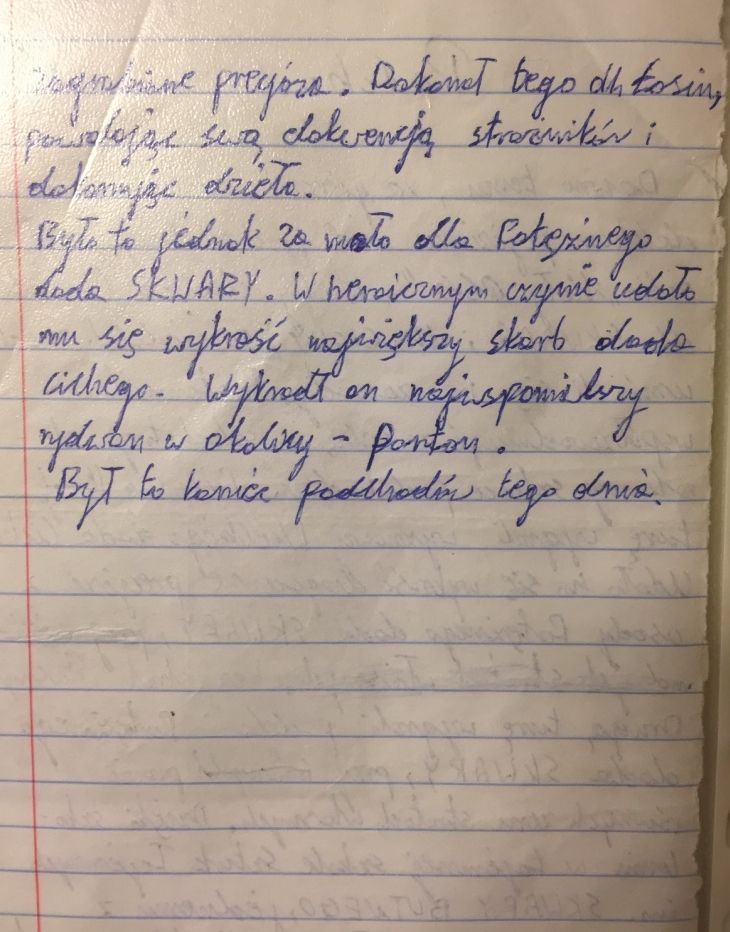 zagrabione precjoza. Dokonał tego dh Łosiu,
powalając swą elokwencją strażników i
dokonując dzieła.
Było to jednak za mało dla Potężnego
dada SKWARY. W heroicznym czynie udało
mu się wykraść największy skarb dada
cichego. Wykradł on najwspanialszy
rydwan w okolicy - ponton.
Był to koniec podchodów tego dnia.